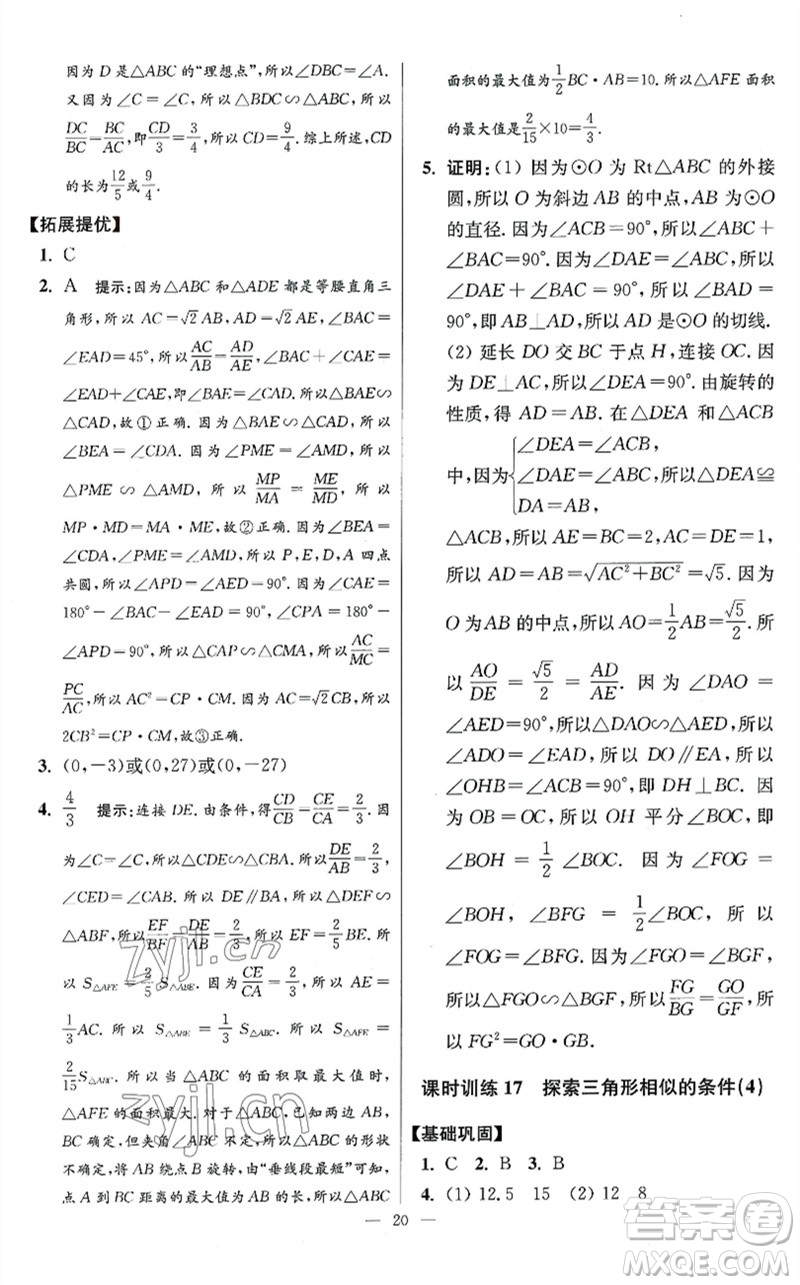 因为 D 是△ABC 的“理想点”,所以∠DBC=∠A.
又因为 ∠C = ∠C,所以△BDC∽△ABC,所以
DC/BC = BC/AC,即 CD/3 = 3/4,所以 CD= 9/4. 综上所述,CD
的长为 12/5 或 9/4.
【拓展提优】
1. C
2. A 提示:因为△ABC 和△ADE 都是等腰直角三
角形,所以 AC=√2 AB,AD=√2 AE,∠BAC=
∠EAD=45°,所以 AC/AB = AD/AE,∠BAC+∠CAE=
∠EAD+∠CAE,即∠BAE=∠CAD,所以△BAE∽
△CAD,故①正确. 因为△BAE∽△CAD,所以
∠BEA=∠CDA. 因为∠PME=∠AMD,所以
△PME ∽ △AMD,所以 MP/MA = ME/MD,所以
MP・MD=MA・ME,故②正确. 因为∠BEA=
∠CDA,∠PME=∠AMD,所以 P,E,D,A 四点
共圆,所以∠APD=∠AED=90°. 因为∠CAE=
180°-∠BAC-∠EAD =90°,∠CPA =180°-
∠APD=90°,所以△CAP∽△CMA,所以 AC/MC =
PC/AC,所以 AC²=CP・CM. 因为 AC=√2CB,所以
2CB²=CP・CM,故③正确.
3. (0,-3)或(0,27)或(0,-27)
4. 4/3 提示:连接 DE. 由条件,得 CD/CB = CE/CA = 2/3. 因
为∠C=∠C,所以△CDE∽△CBA,所以 DE/AB = 2/3,
∠CED=∠CAB. 所以 DE∥BA,所以△DEF∽
△ABF,所以 EF/BF = DE/AB = 2/3,所以 EF= 2/5 BE. 所
以 S△AFE = 2/5 S△ABE. 因为 CE/CA = 2/3,所以 AE=
1/3 AC. 所以 S△ABE = 1/3 S△ABC. 所以 S△AFE =
2/15 S△ABC. 所以当△ABC 的面积取最大值时,
△AFE 的面积也有最大值. 对于△ABC,BC,AB
确定,但夹角∠ABC 不定,所以△ABC 的形状
不确定,将 AB 绕点 B 旋转,由“垂线段最短”可知,
点 A 到 BC 距离的最大值为 BA 的长,所以△ABC
面积的最大值为 1/2 BC・AB=10. 所以△AFE 面积
的最大值是 2/15 ×10= 4/3.
5. 证明:(1) 因为⊙O 为 Rt△ABC 的外接
圆,所以 O 为斜边 AB 的中点,AB 为⊙O
的直径. 因为∠ACB=90°,所以∠ABC+
∠BAC=90°. 因为∠DAE=∠ABC,所以
∠DAE + ∠BAC = 90°,所以∠BAD =
90°,即 AB⊥AD,所以 AD 是⊙O 的切线.
(2) 延长 DO 交 BC 于点 H,连接 OC. 因
为 DE⊥AC,所以∠DEA=90°. 由旋转的
性质,得 AD=AB. 在△DEA 和△ACB
中,因为{∠DEA=∠ACB, ∠DAE=∠ABC, DA=AB, 所以△DEA≌
△ACB,所以 AE=BC=2,AC=DE=1,
所以 AD=AB=√(AC²+BC²)=√5. 因为
O 为 AB 的中点,所以 AO= 1/2 AB= √5/2. 所
以 AO/DE = √5/2 = AD/AE. 因为∠DAO =
∠AED=90°,所以△DAO∽△AED,所以
∠ADO=∠EAD,所以 DO∥EA,所以
∠OHB=∠ACB=90°,即 DH⊥BC. 因
为 OB = OC,所以 OH 平分∠BOC,即
∠BOH = 1/2 ∠BOC. 因为∠FOG =
∠BOH,∠BFG = 1/2 ∠BOC,所以
∠FOG=∠BFG. 因为∠FGO=∠BGF,
所以△FGO∽△BGF,所以 FG/BG = GO/GF,所
以 FG²=GO・BG.
课时训练 17 探索三角形相似的条件(4)
【基础巩固】
1. C 2. B 3. B
4. (1) 12.5 15 (2) 12 8
— 20 —
zyjl.cn
答案圈
MXQE.COM